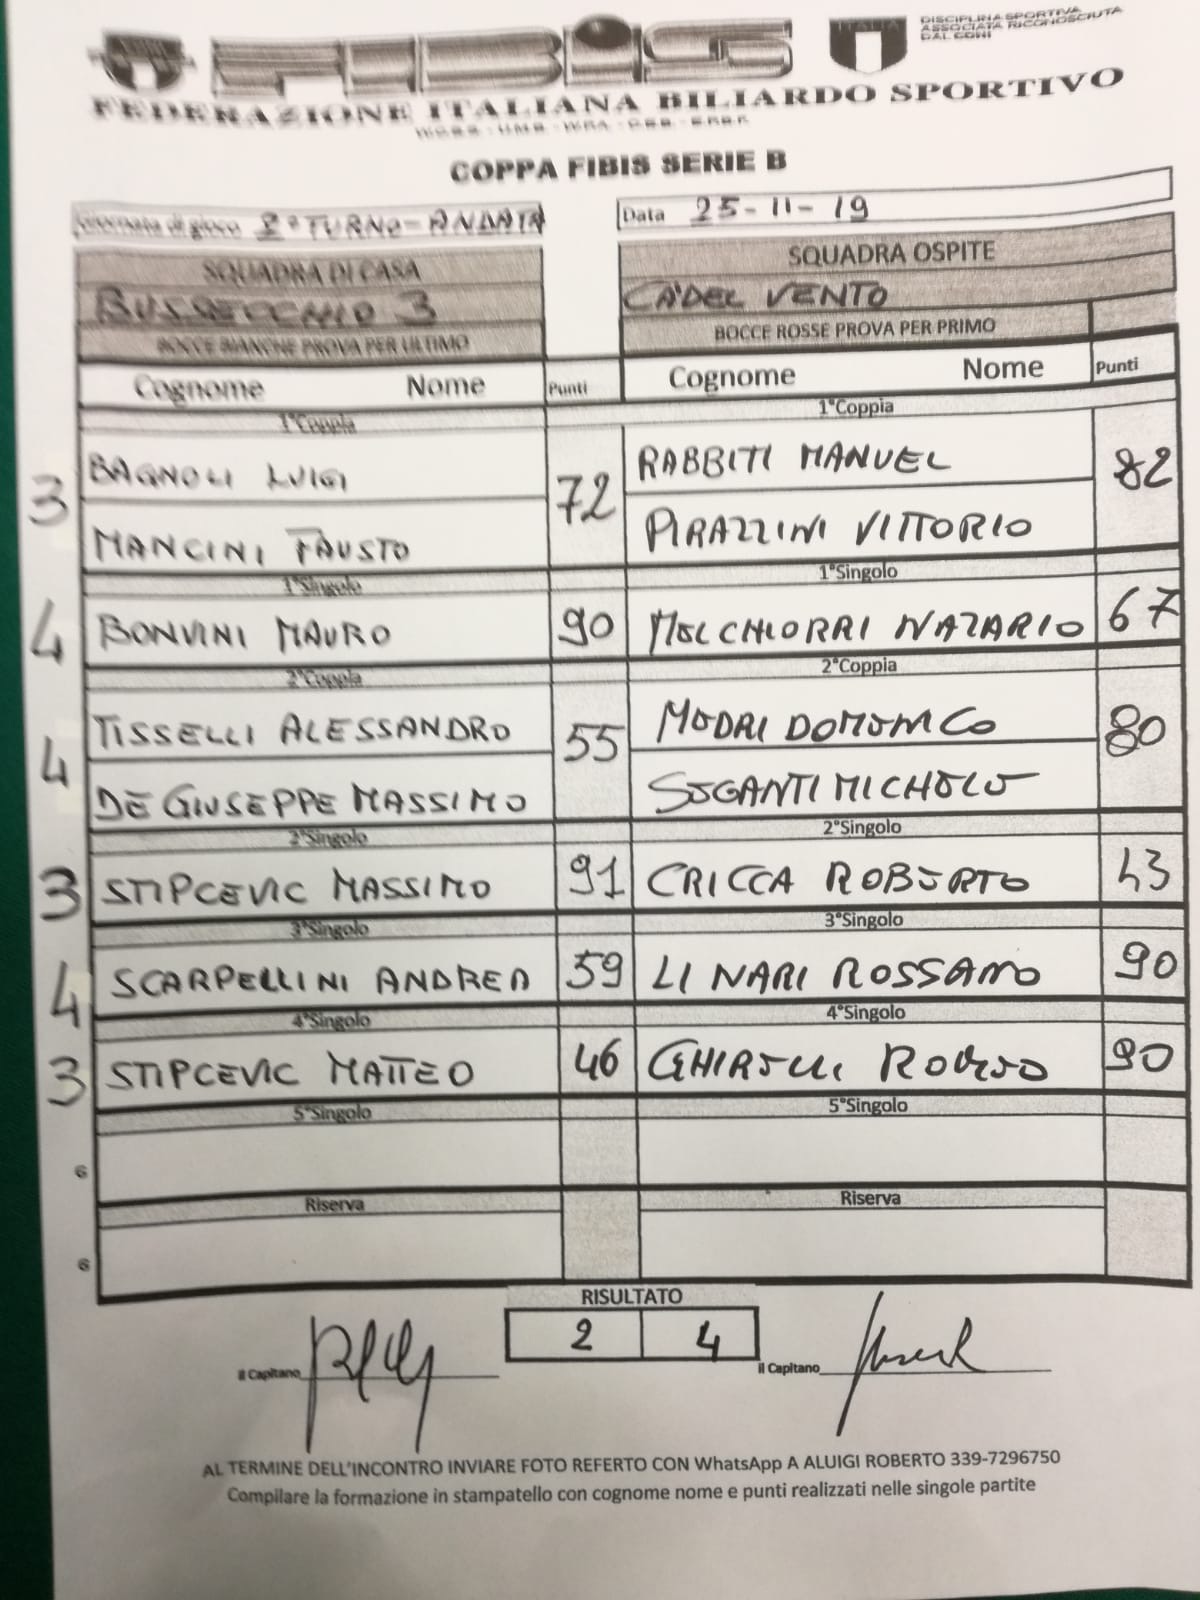 FIBiS
ITALIA
DISCIPLINA SPORTIVA
ASSOCIATA RICONOSCIUTA
DAL CONI
FEDERAZIONE ITALIANA BILIARDO SPORTIVO
COPPA FIBIS SERIE B
Giornata di gioco 8° TURNO-ANDATA Data 25-11-19
SQUADRA DI CASA SQUADRA OSPITE
BUSSECCHIO 3 CA'DEL VENTO
BOCCE BIANCHE PROVA PER ULTIMO BOCCE ROSSE PROVA PER PRIMO
Cognome Nome Punti Cognome Nome Punti
1°Coppia 1°Coppia
3 BAGNOLI LUIGI 72 RABBITI MANUEL 82
MANCINI FAUSTO PIRAZZINI VITTORIO
1°Singolo 1°Singolo
4 BONVINI MAURO 90 MELCHIORRI NAZARIO 67
2°Coppia 2°Coppia
4 TISSELLI ALESSANDRO 55 MODRI DOMENICO 80
DE GIUSEPPE MASSIMO SEGANTI MICHELE
2°Singolo 2°Singolo
3 STIPCEVIC MASSIMO 91 CRICCA ROBERTO 43
3°Singolo 3°Singolo
4 SCARPELLINI ANDREA 59 LINARI ROSSANO 90
4°Singolo 4°Singolo
3 STIPCEVIC MATTEO 46 GHIRELLI 90
5°Singolo 5°Singolo
6
Riserva Riserva
6
RISULTATO
2 4
il Capitano il Capitano
AL TERMINE DELL'INCONTRO INVIARE FOTO REFERTO CON WhatsApp A ALUIGI ROBERTO 339-7296750
Compilare la formazione in stampatello con cognome nome e punti realizzati nelle singole partite